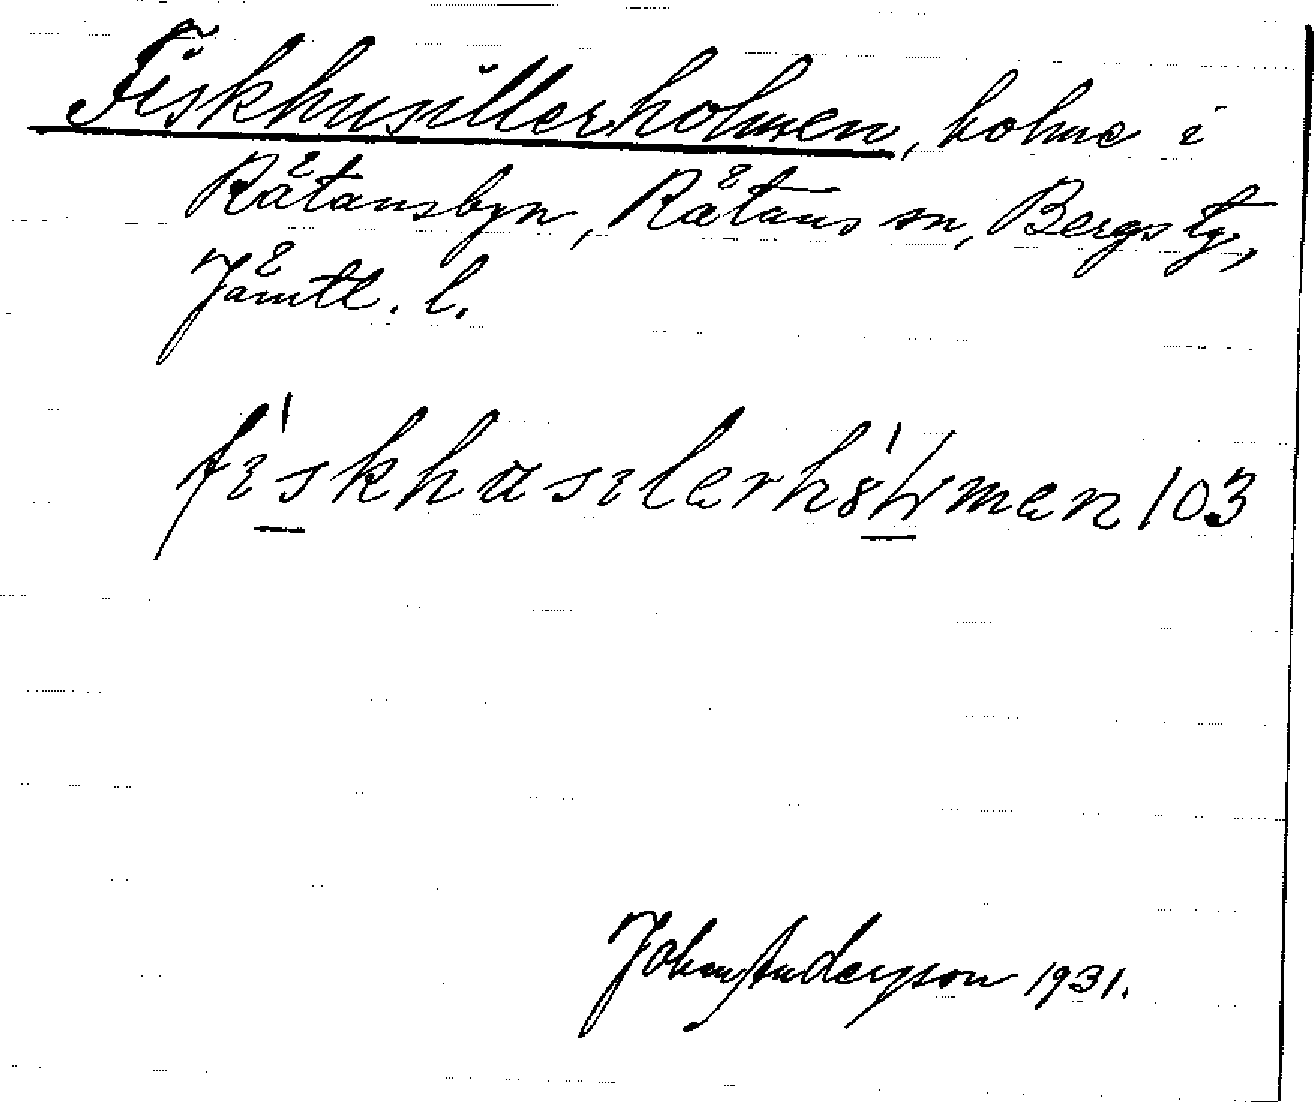 Fiskhusillerholmen, holme i
Råtansbyn, Råtans sn, Bergs tg,
Jämtl. l.
fiskhusilerhölmen 103
Johan Anderson 1931.